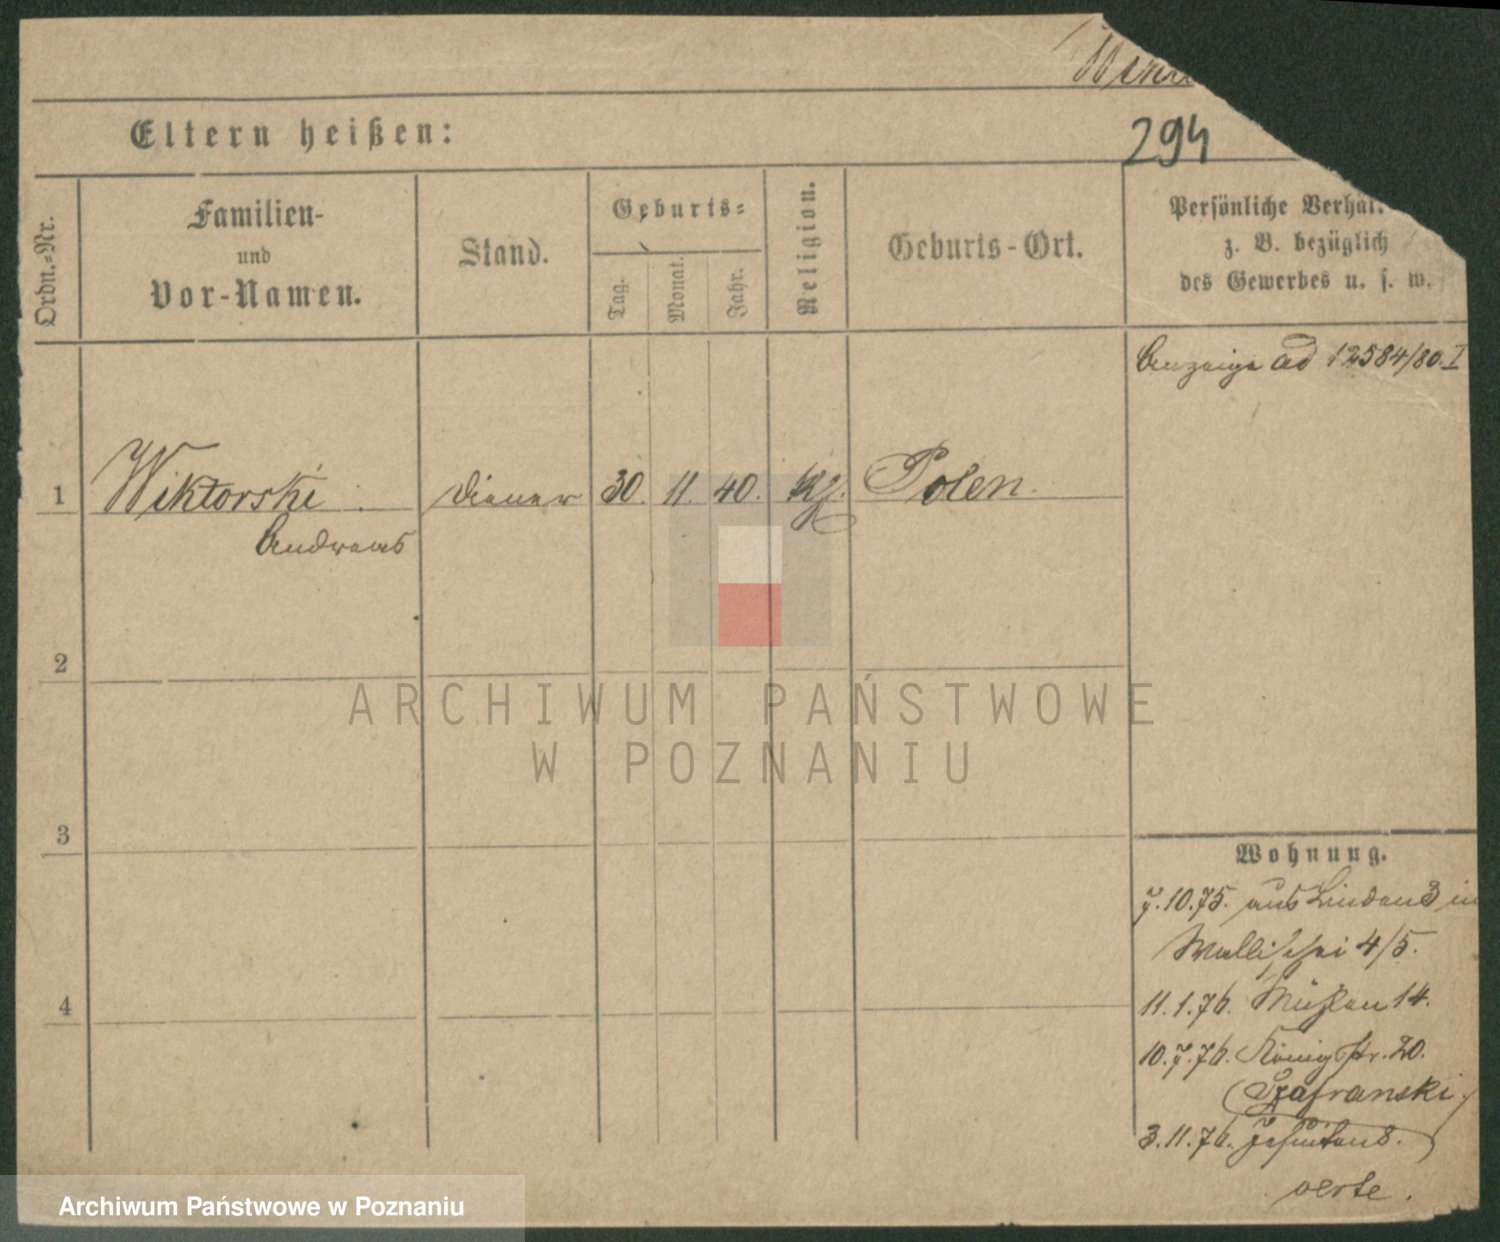 294
Eltern heißen:
Ordn.=Nr.
Familien-
und
Vor-Namen.
Stand.
Geburts=
Tag.
Monat.
Jahr.
Religion.
Geburts-Ort.
Persönliche Verhäl
z. B. bezüglich
des Gewerbes u. s. w.
Anzeige ad 12584/80. I
1 Wiktorski Diener 30. 11. 40. Polen.
Andreas
2
3
4
Wohnung.
7.10.75. aus Lindens 3 in
Wallischei 4/5.
11.1.76. Mühlen 14.
10.7.76. Königstr. 20.
(Szafranski)
3.11.76. Jesuiten 8.
verte.
ARCHIWUM PAŃSTWOWE
W POZNANIU
Archiwum Państwowe w Poznaniu